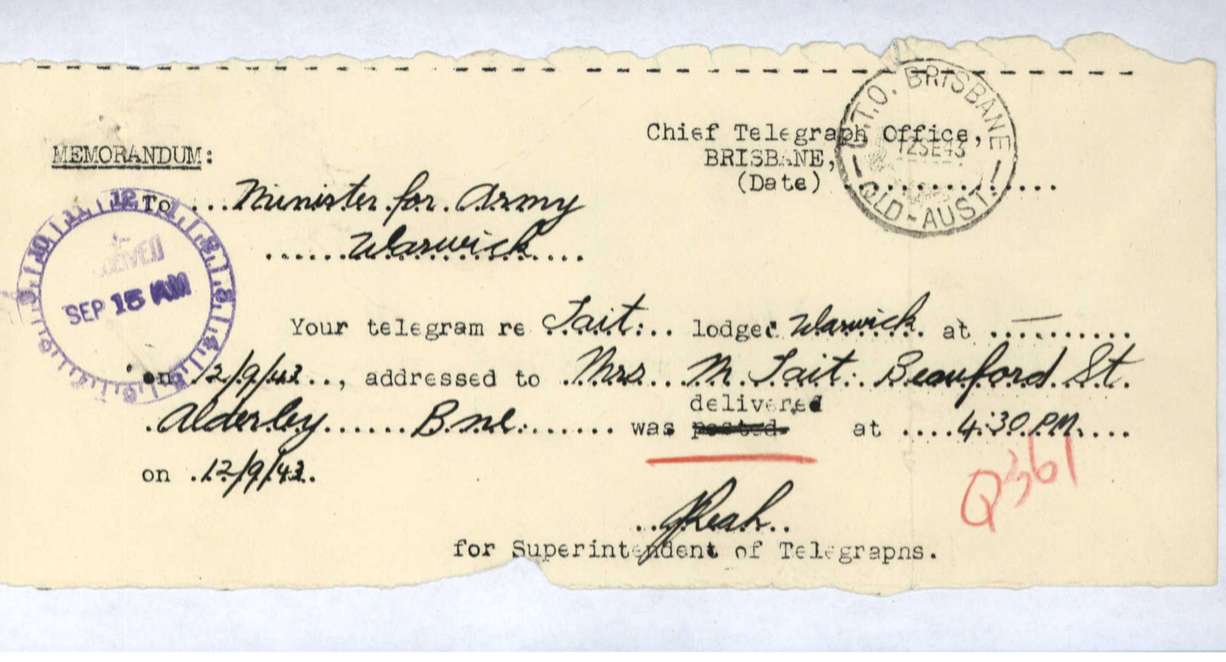 MEMORANDUM:
Chief Telegraph Office,
BRISBANE,
(Date) ..............
C.T.O. BRISBANE
12SE43
QLD-AUST.
To ... Minister for Army
Warwick
RECEIVED
SEP 15 AM
Your telegram re Tait: lodged Warwick at —
on 12/9/43, addressed to Mrs M Tait: Beauford St.
delivered
Alderley Bne. was posted at 4:30 PM.
on 12/9/43.
Q361
for Superintendent of Telegraphs.